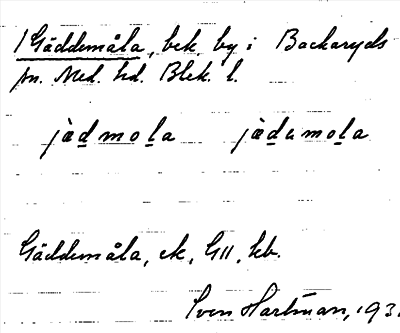 1 Gäddemåla, bek. by i Backaryds
sn. Med. hd. Blek. l.
jàd̲mol̲a jàd̲amol̲a
Gäddemåla, ek, G11, kb.
Sven Hartman, 193